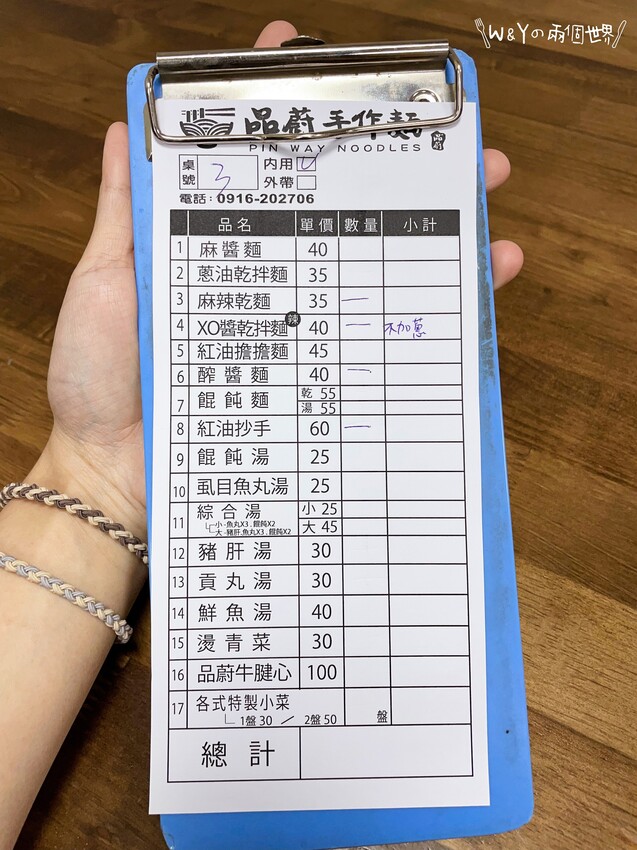 W&Yの兩個世界
品蔚手作麵
PIN WAY NOODLES
桌號 3 內用
外帶
電話：0916-202706
品名 單價 數量 小計
1 麻醬麵 40
2 蔥油乾拌麵 35
3 麻辣乾麵 35 一
4 XO醬乾拌麵 辣 40 一 不加蔥
5 紅油擔擔麵 45
6 醡醬麵 40 一
7 餛飩麵 乾 55
湯 55
8 紅油抄手 60 一
9 餛飩湯 25
10 虱目魚丸湯 25
11 綜合湯 小 25
小-魚丸X3．餛飩X2
大-豬肝.魚丸X3．餛飩X2 大 45
12 豬肝湯 30
13 貢丸湯 30
14 鮮魚湯 40
15 燙青菜 30
16 品蔚牛腱心 100
17 各式特製小菜
1盤 30 ／ 2盤 50 盤
總計